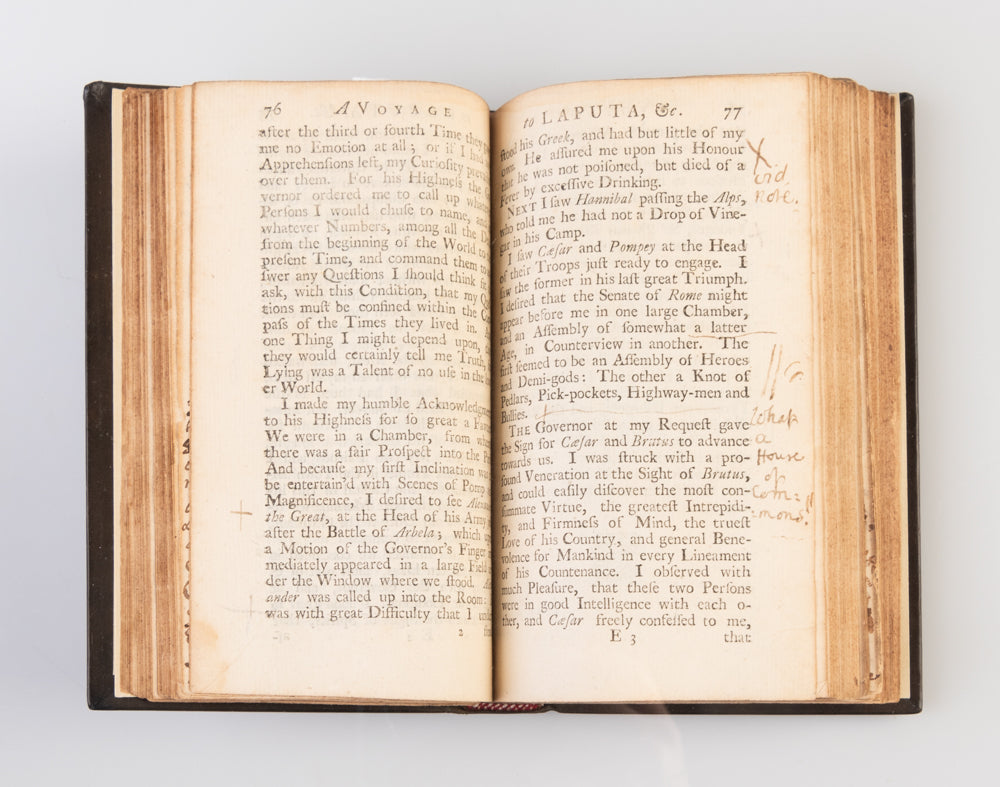 76 A VOYAGE
after the third or fourth Time they
me no Emotion at all; or if I had
Apprehenſions left, my Curioſity
over them. For his Highneſs the
vernor ordered me to call up
Perſons I would chuſe to name,
whatever Numbers, among all the
from the beginning of the World to
preſent Time, and command them to
ſwer any Queſtions I ſhould think fit
ask, with this Condition, that my
tions muſt be confined within the
paſs of the Times they lived in.
one Thing I might depend upon,
they would certainly tell me Truth,
Lying was a Talent of no uſe in the
er World.
I made my humble
to his Highneſs for ſo great a
We were in a Chamber, from
there was a fair Proſpect into the
And becauſe my firſt Inclination
be entertain'd with Scenes of
Magnificence, I deſired to ſee
the Great, at the Head of his Army
after the Battle of Arbela; which
a Motion of the Governor's Finger
mediately appeared in a large Field
der the Window where we ſtood.
ander was called up into the Room:
was with great Difficulty that I
2
to LAPUTA, &c. 77
ſtood his Greek, and had but little of my
own. He aſſured me upon his Honour
that he was not poiſoned, but died of a
Fever by exceſſive Drinking.
NEXT I ſaw Hannibal paſſing the Alps,
who told me he had not a Drop of Vine-
gar in his Camp.
I ſaw Cæſar and Pompey at the Head
of their Troops juſt ready to engage. I
ſaw the former in his laſt great Triumph.
I deſired that the Senate of Rome might
appear before me in one large Chamber,
and an Aſſembly of ſomewhat a latter
Age, in Counterview in another. The
firſt ſeemed to be an Aſſembly of Heroes
and Demi-gods: The other a Knot of
Pedlars, Pick-pockets, Highway-men and
Bullies.
THE Governor at my Requeſt gave
the Sign for Cæſar and Brutus to advance
towards us. I was ſtruck with a pro-
found Veneration at the Sight of Brutus,
and could eaſily diſcover the moſt con-
ſummate Virtue, the greateſt Intrepidi-
ty, and Firmneſs of Mind, the trueſt
Love of his Country, and general Bene-
volence for Mankind in every Lineament
of his Countenance. I obſerved with
much Pleaſure, that theſe two Perſons
were in good Intelligence with each o-
ther, and Cæſar freely confeſſed to me,
E 3 that
X
vid.
note.
What
a
House
of
Com:
mons!